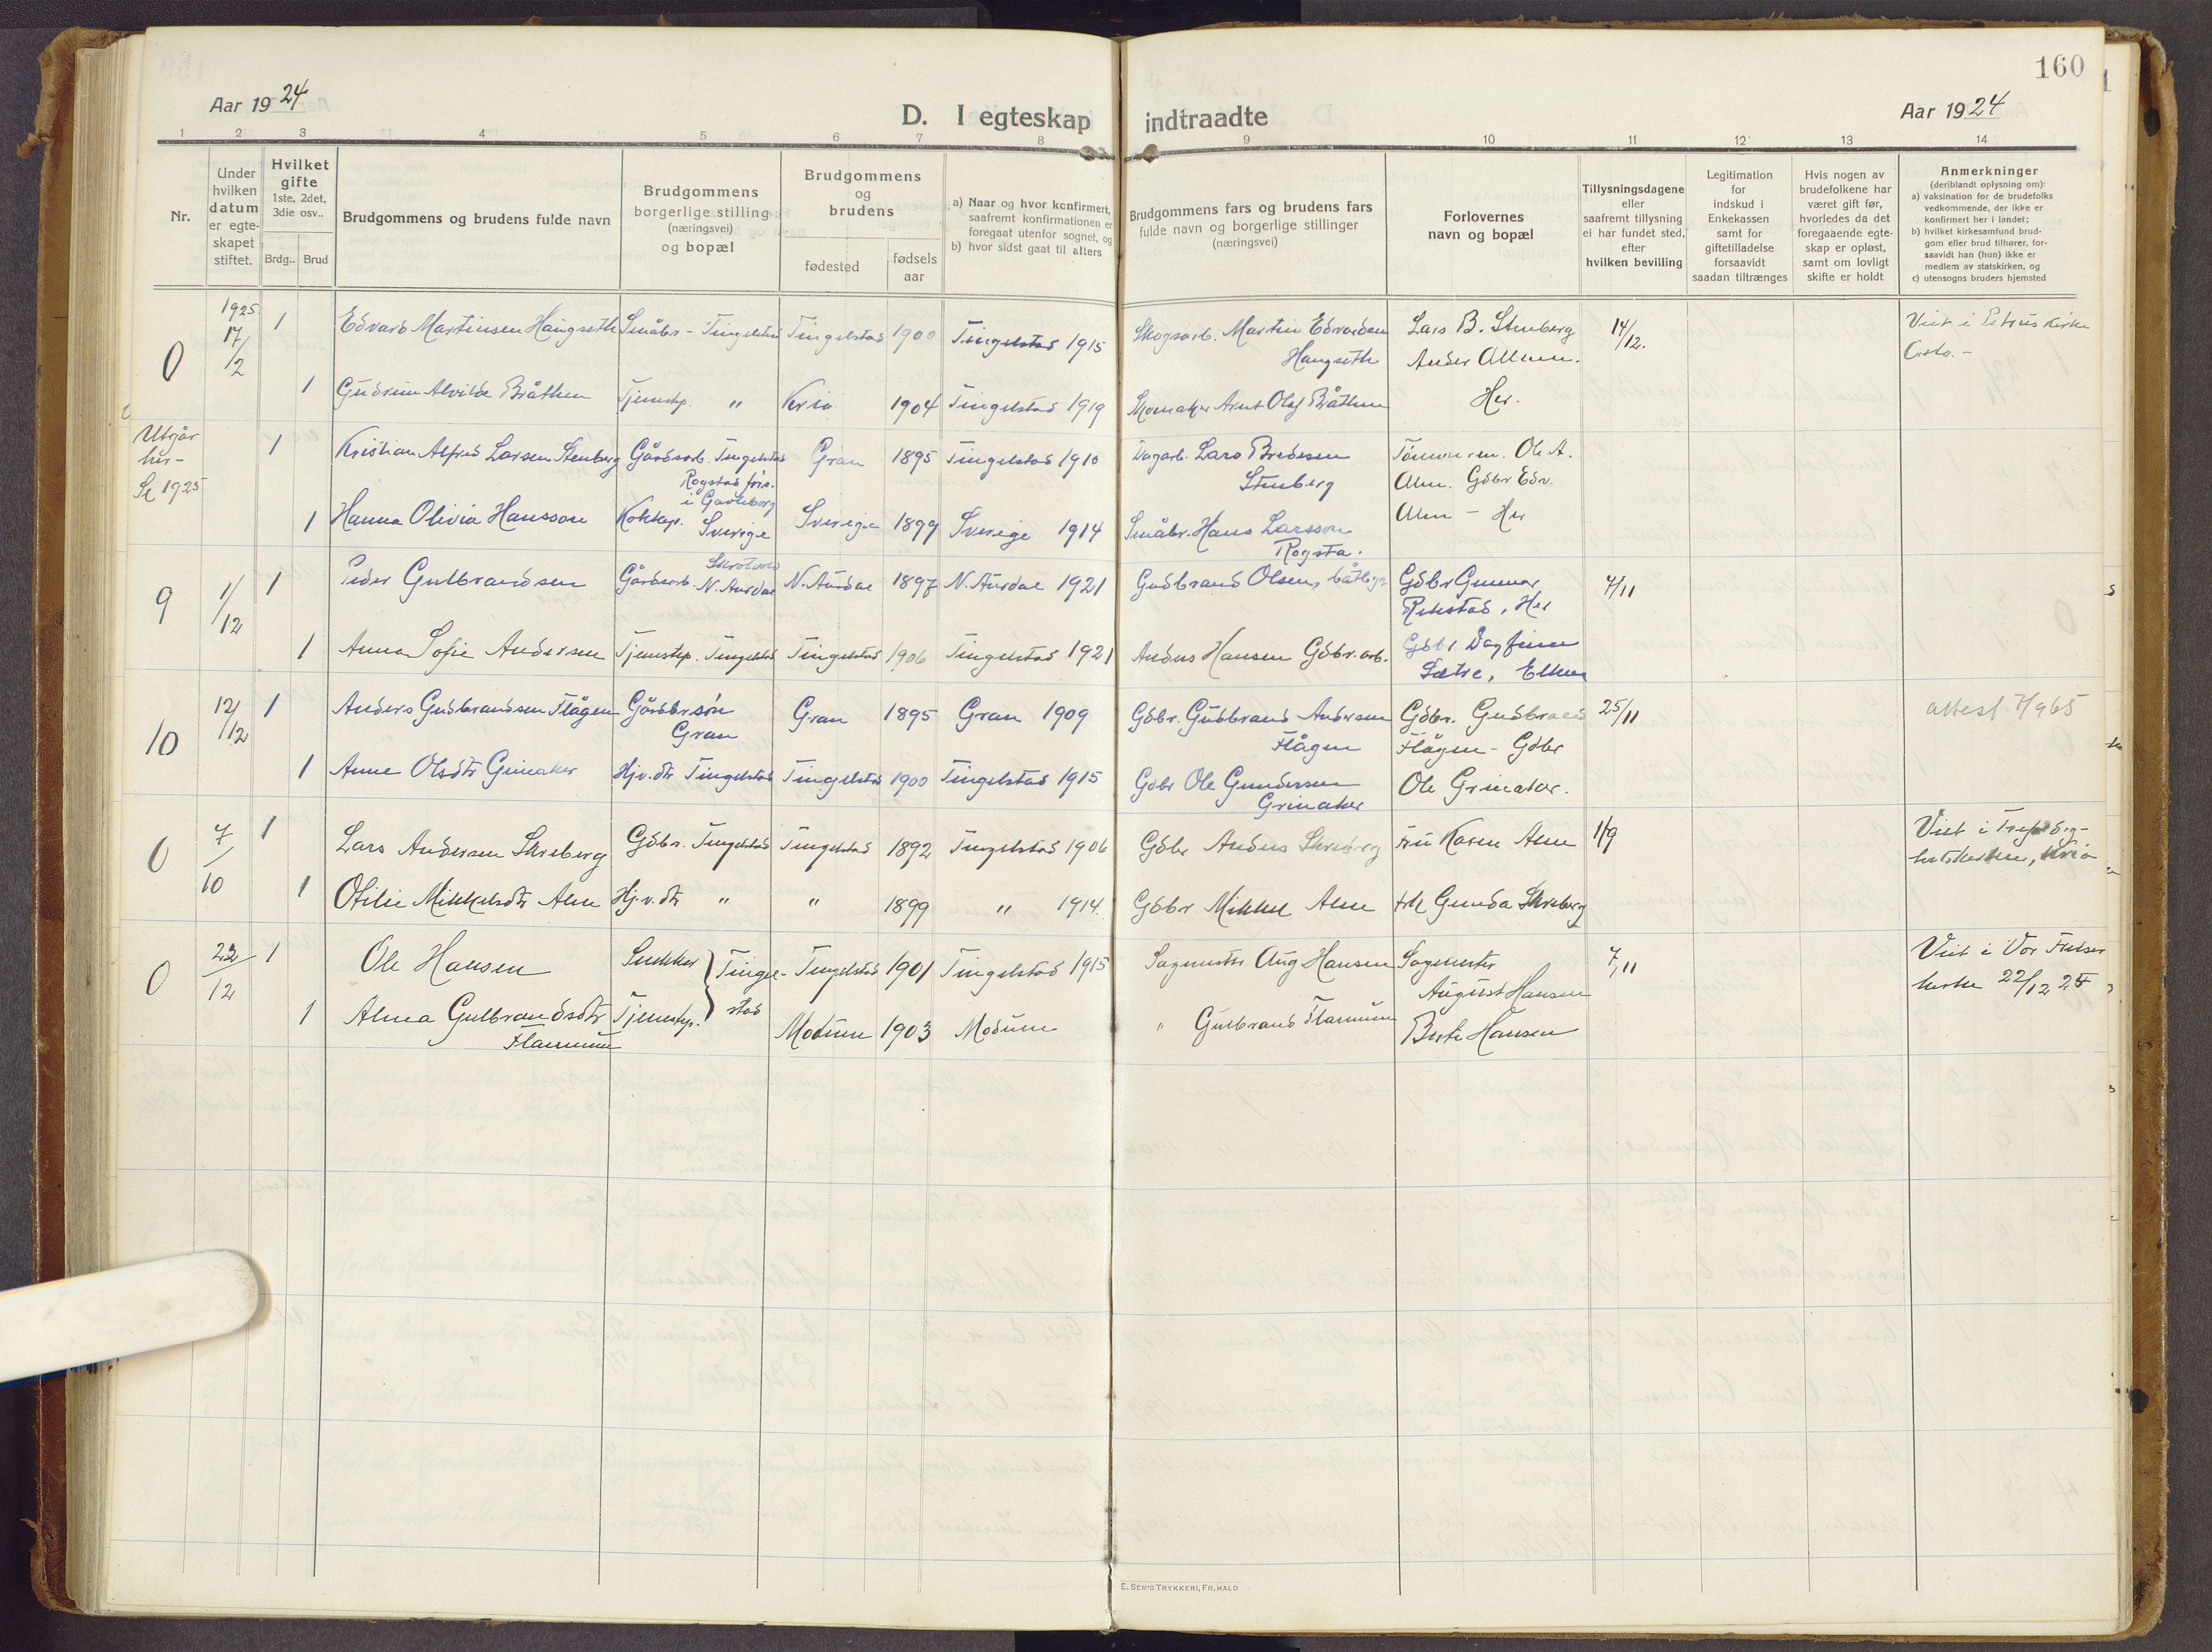 160
Aar 1924
D. I egteskap indtraadte
Aar 1924
1 2 3 4 5 6 7 8 9 10 11 12 13 14
Nr.
Under hvilken datum er egteskapet stiftet.
Hvilket gifte
1ste, 2det, 3die osv..
Brdg.. Brud
Brudgommens og brudens fulde navn
Brudgommens
borgerlige stilling
(næringsvei)
og bopæl
Brudgommens
og
brudens
fødested
fødsels
aar
a) Naar og hvor konfirmert,
saafremt konfirmationen er
foregaat utenfor sognet, og
b) hvor sidst gaat til alters
Brudgommens fars og brudens fars
fulde navn og borgerlige stillinger
(næringsvei)
Forlovernes
navn og bopæl
Tillysningsdagene
eller
saafremt tillysning
ei har fundet sted,
efter
hvilken bevilling
Legitimation
for
indskud i
Enkekassen
samt for
giftetilladelse
forsaavidt
saadan tiltrænges
Hvis nogen av
brudefolkene har
været gift før,
hvorledes da det
foregaaende egte-
skap er opløst,
samt om lovligt
skifte er holdt
Anmerkninger
(deriblandt oplysning om):
a) vaksination for de brudefolks
vedkommende, der ikke er
konfirmert her i landet;
b) hvilket kirkesamfund brud-
gom eller brud tilhører, for-
saavidt han (hun) ikke er
medlem av statskirken, og
c) utensogns bruders hjemsted
0 1925 17/2 1 Edvard Martinsen Haugseth Småbr - Tingelstad Tingelstad 1900 Tingelstad 1915 Skogsarb. Martin Edvardsen Haugseth Lars B. Stenberg 14/12. Viet i Petrus kirke
Oslo.-
1 Gudrun Alvilde Bråthen Tjenestp. " Kria 1904 Tingelstad 1919 Skomaker Arnt Olaf Bråthen Her.
Utgår
her-
Se 1925
1 Kristian Alfred Larsen Stenberg Gårdsarb. Tingelstad Gran 1895 Tingelstad 1910 Dagarb. Lars Bredesen Stenberg Tømmerm. Ole A.
Alm. Gdbr Edv.
Rogstad
i Gavleborg
1 Hanna Olivia Hansson Kokkep. Sverige Sverige 1899 Sverige 1914 Småbr. Hans Larsson
Rogsta.
Alm - Her
9 1/12 1 Peder Gulbrandsen Gårdsarb. N. Aurdal N. Aurdal 1897 N. Aurdal 1921 Gudbrand Olsen, båtbyg Gdbr Gunnar
Rekstad, Her 4/11
1 Anna Sofie Andersen Tjenestp. Tingelstad Tingelstad 1906 Tingelstad 1921 Anders Hansen Gdbr. arb. Gdbr Dagfinn
Sætre,
10 12/12 1 Anders Gudbrandsen Flågen Gårdbr.søn
Gran Gran 1895 Gran 1909 Gdbr. Gudbrand Andersen
Flågen Gdbr. Gudbrand
Flågen - Gdbr 25/11 attest 7/9 65
1 Anne Olsdtr Grinaker Hjv. dtr Tingelstad Tingelstad 1900 Tingelstad 1915 Gdbr Ole Gundersen
Grinaker Ole Grinaker.
0 7/10 1 Lars Andersen Skreberg Gdbr. Tingelstad Tingelstad 1892 Tingelstad 1906 Gdbr Anders Skreberg Fru Karen Alm 11/9 Viet i Trefoldig-
hetskirken, Kria
1 Otilie Mikkelsdtr Alm Hj.v. dtr " " 1899 " 1914. Gdbr Mikkel Alm Frk Gunda Skreberg
0 22/12 1 Ole Hansen Snekker Tingel- Tingelstad 1901 Tingelstad 1915 Sagmester Aug Hansen Sagmester
August Hansen 7/11 Viet i Vor Frelser
kirke 22/12 24
1 Alma Gulbrandsdtr
Flannum Tjenestp. stad Modum 1903 Modum " Gulbrand Flannum Berte Hansen
E. SEM'S TRYKKERI, FR.HALD